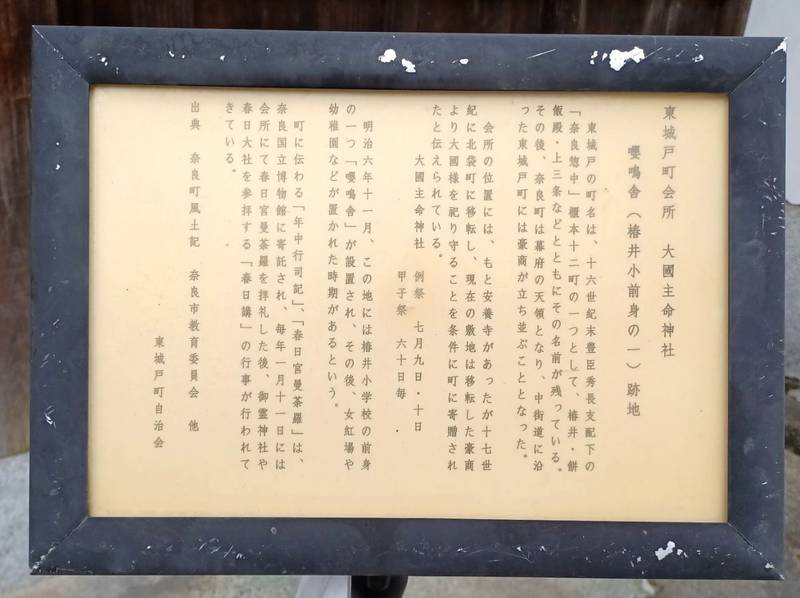 東城戸町会所　大國主命神社
嚶鳴舎（椿井小前身の一）跡地
東城戸の町名は、十六世紀末豊臣秀長支配下の
「奈良惣中」櫃本十二町の一つとして、椿井・餅
飯殿・上三条などとともにその名前が残っている。
その後、奈良町は幕府の天領となり、中街道に沿
った東城戸町には豪商が立ち並ぶこととなった。
会所の位置には、もと安養寺があったが十七世
紀に北袋町に移転し、現在の敷地は移転した豪商
より大國様を祀り守ることを条件に町に寄贈され
たと伝えられている。
大國主命神社　例祭　七月九日・十日
甲子祭　六十日毎
明治六年十一月、この地には椿井小学校の前身
の一つ「嚶鳴舎」が設置され、その後、女紅場や
幼稚園などが置かれた時期があるという。
町に伝わる「年中行司記」、「春日宮曼荼羅」は、
奈良国立博物館に寄託され、毎年一月十一日には
会所にて春日宮曼荼羅を拝礼した後、御霊神社や
春日大社を参拝する「春日講」の行事が行われて
きている。
出典　奈良町風土記　奈良市教育委員会　他
東城戸町自治会